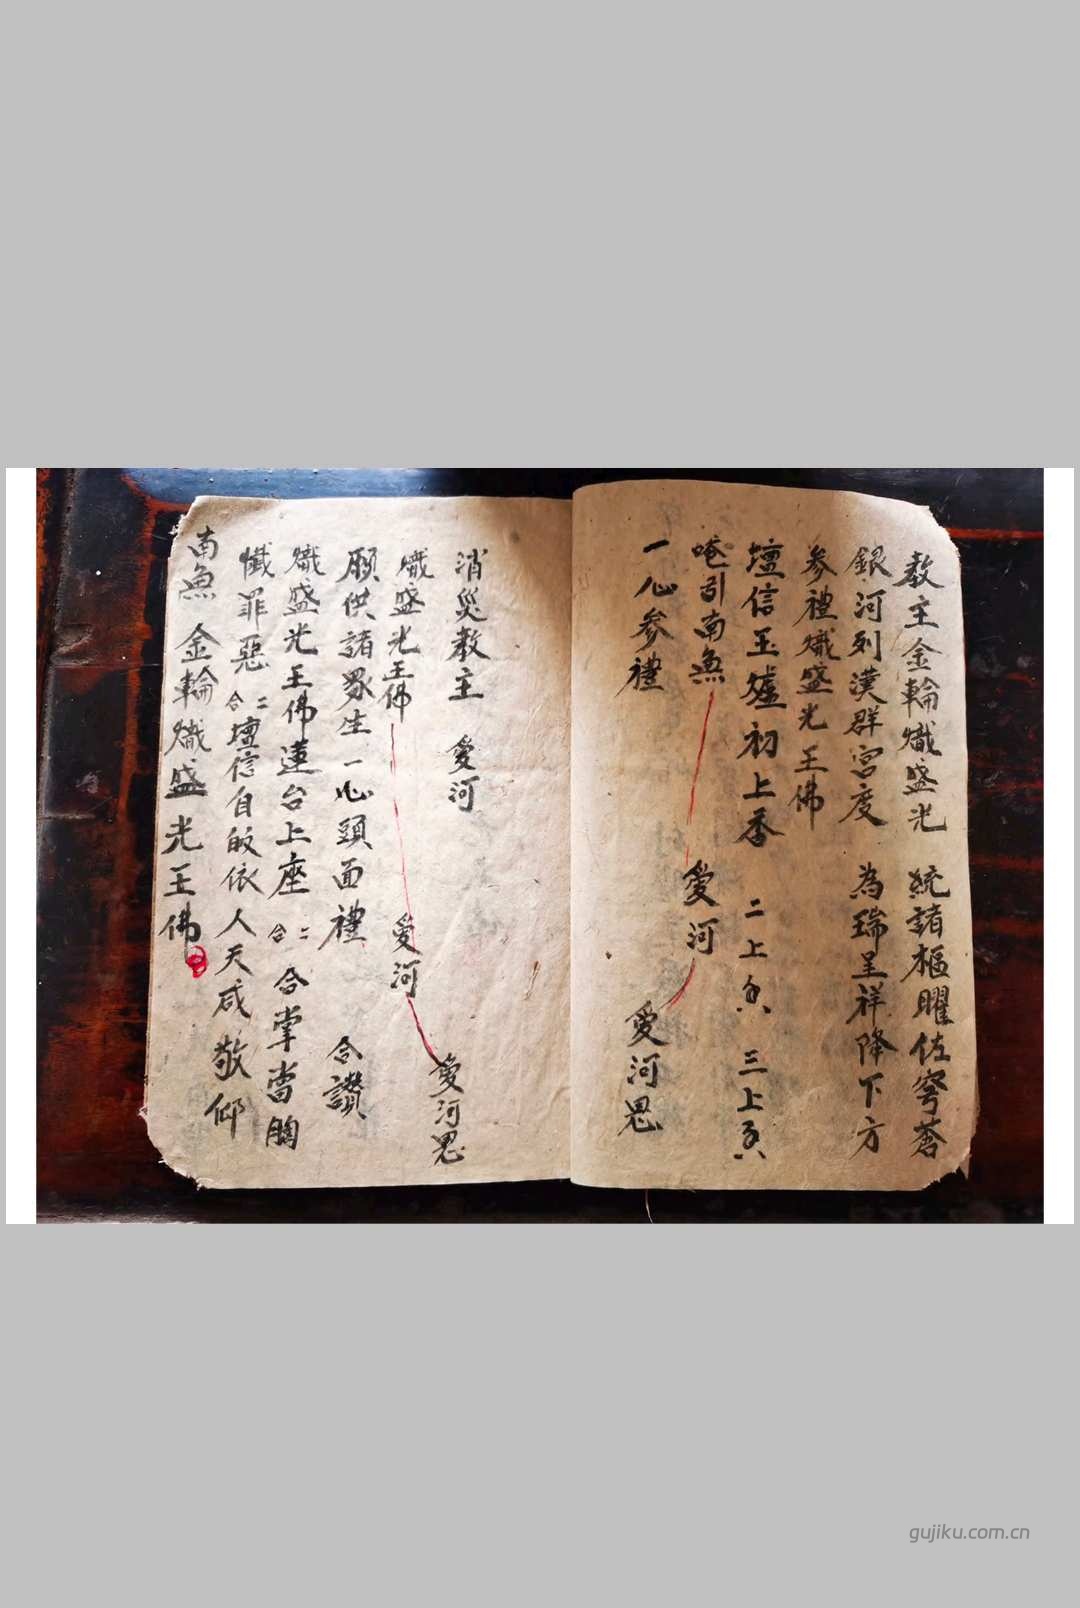 教主金輪熾盛光 統諸樞曜佐穹蒼
銀河列漢群宮度 為瑞呈祥降下方
參禮熾盛光王佛
壇信玉爐初上香 二上香 三上香
唵引南無 愛河
一心參禮 愛河思
消災教主 愛河
熾盛光王佛 愛河 愛河思
願供諸眾生一心頭面禮 合讚
熾盛光王佛蓮台上座 二合 合掌當胸
懺罪惡 二合 壇信自皈依人天咸敬仰
南無 金輪熾盛光王佛
gujiku.com.cn